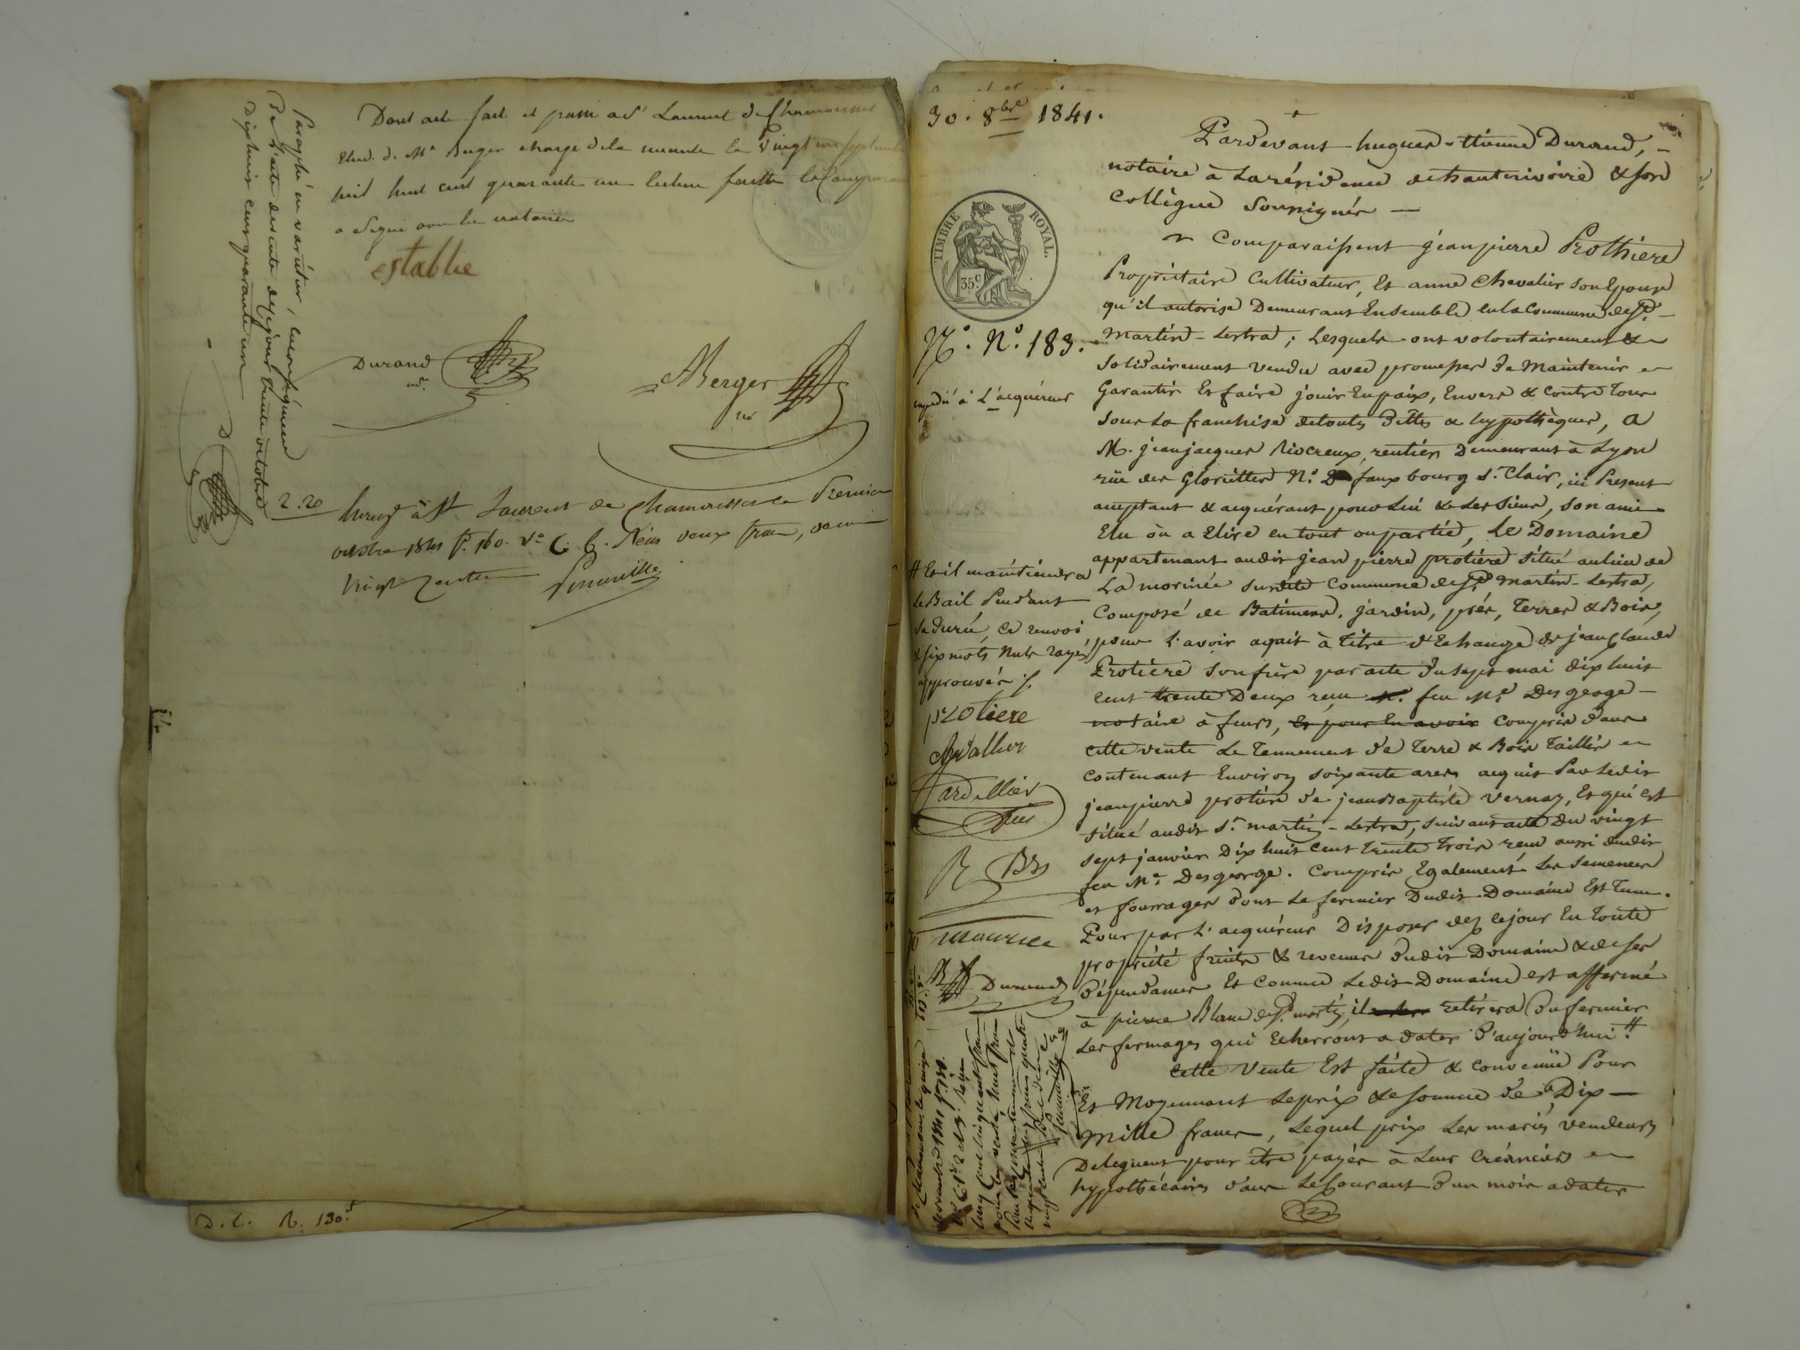 Dont acte fait et passé a St Laurent de Chamousset
Etud. d. Me Berger chargé de la minute le Vingt un septembre
mil huit cent quarante un lecture faitte le Comparant
a Signé avec les notaires
establie
Durand
Berger
nre
Paraphé ne varietur, au
De l'acte de vente de ce jour trente octobre
Dix huit cent quarante un
D
2.20
Enregt à St Laurent de Chamousset le Premier
octobre 1841 fo. 160. Vo C. 6. Reçu deux francs, décime
vingt centimes
D. L. R. 130.
30. 8bre 1841.
TIMBRE ROYAL.
35c
No. 183.
expédié à L'acquéreur
Pardevant hugues-étienne Durand,
notaire à La résidence de hauterivoire & son
Collègue Soussignés —
Comparaissent Jean pierre Prothiere
Propriétaire Cultivateur, Et anne Chevalier son Epouse
qu'il autorise Demeurant Ensemble en la Commune de St.
Martin-Lestra; Lesquels ont volontairement &
Solidairement vendu avec promesse de Maintenir
Garantir Et faire jouir En paix, Envers & Contre tous
Sous La franchise de toutes Dettes & hypothèques, A
M. jean jacques Riocreux, rentier Demeurant à Lyon
rüe des Gloriettes No. 2 faux bourg St. Clair, ici Présent
acceptant & acquérant pour Lui & Les Siens, Son ami
Elu où a Elire en tout ou partie, Le Domaine
appartenant audit Jean pierre protière Situé au lieu de
La morinée sur dite Commune de St martin-Lestra,
Composé de Batimens, jardin, prés, Terres & Bois,
pour L'avoir acquit à Titre d'Echange de jean Claude
Protière Son frère par acte du sept mai dix huit
Cent trente Deux reçu feu Me. Desgeorge —
notaire à feurs, et pour En avoir Compris dans
Cette vente Le Tennement de Terre & Bois Taillis
Contenant Environ Soixante ares acquis Par Ledit
jean pierre protière de jean Baptiste Vernay, Et qui est
Situé audit St. martin-Lestra, suivant acte du vingt
sept janvier Dix huit Cent Trente Trois reçu aussi dudit
feu Me. Desgeorge. Compris Egalement Les Semences
et fourrages dont Le fermier Dudit Domaine Est Tenu.
Pour par L'acquéreur Disposer dez Cejour En toute
propriété fruits & revenus dudit Domaine & de ses
dépendances Et Comme Ledit Domaine est affermé
à pierre Blanc de St. martin, il retirera du fermier
Les fermages qui Echerront a dater d'aujourd'hui. #
Cette Vente Est faite & Convenüe Pour
Et Moyennant Le prix & Somme de Dix —
Mille francs, Lequel prix Les mariés Vendeurs
Deleguent pour être payés à Leurs Créanciers
hypothécaires dans Le Courant d'un mois a dater
# Et il maintiendra
Le Bail Pendant
Sa durée, Ce renvoi
& six mots Nuls rayés
approuvés ./.
protiere
Chevallier
Tardellier
R
Maurice
Durand